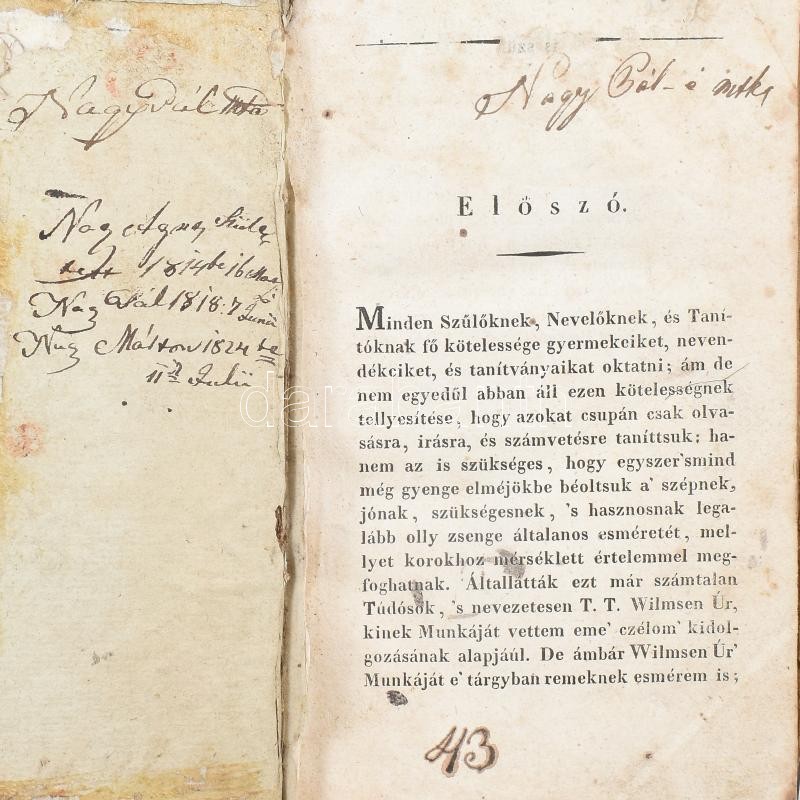 Nagy Pál
Nagy Ágnes Szüle
tett 1814be 16
Nagy Pál 1818: 7 Junii
Nagy Márton 1824 be
11 Julii
Nagy Pál-é
Előszó.
Minden Szűlőknek, Nevelőknek, és Taní-
tóknak fő kötelessége gyermekeiket, neven-
dékeiket, és tanítványaikat oktatni; ám de
nem egyedűl abban áll ezen kötelességnek
tellyesítése, hogy azokat csupán csak olva-
sásra, irásra, és számvetésre taníttsuk: ha-
nem az is szükséges, hogy egyszer'smind
még gyenge elméjökbe béoltsuk a' szépnek,
jónak, szükségesnek, 's hasznosnak lega-
lább olly zsenge általanos esméretét, mel-
lyet korokhoz mérséklett értelemmel meg-
foghatnak. Általlátták ezt már számtalan
Túdósok, 's nevezetesen T. T. Wilmsen Úr,
kinek Munkáját vettem eme' czélom' kidol-
gozásának alapjáúl. De ámbár Wilmsen Úr'
Munkáját e' tárgyban remeknek esmérem is;
43